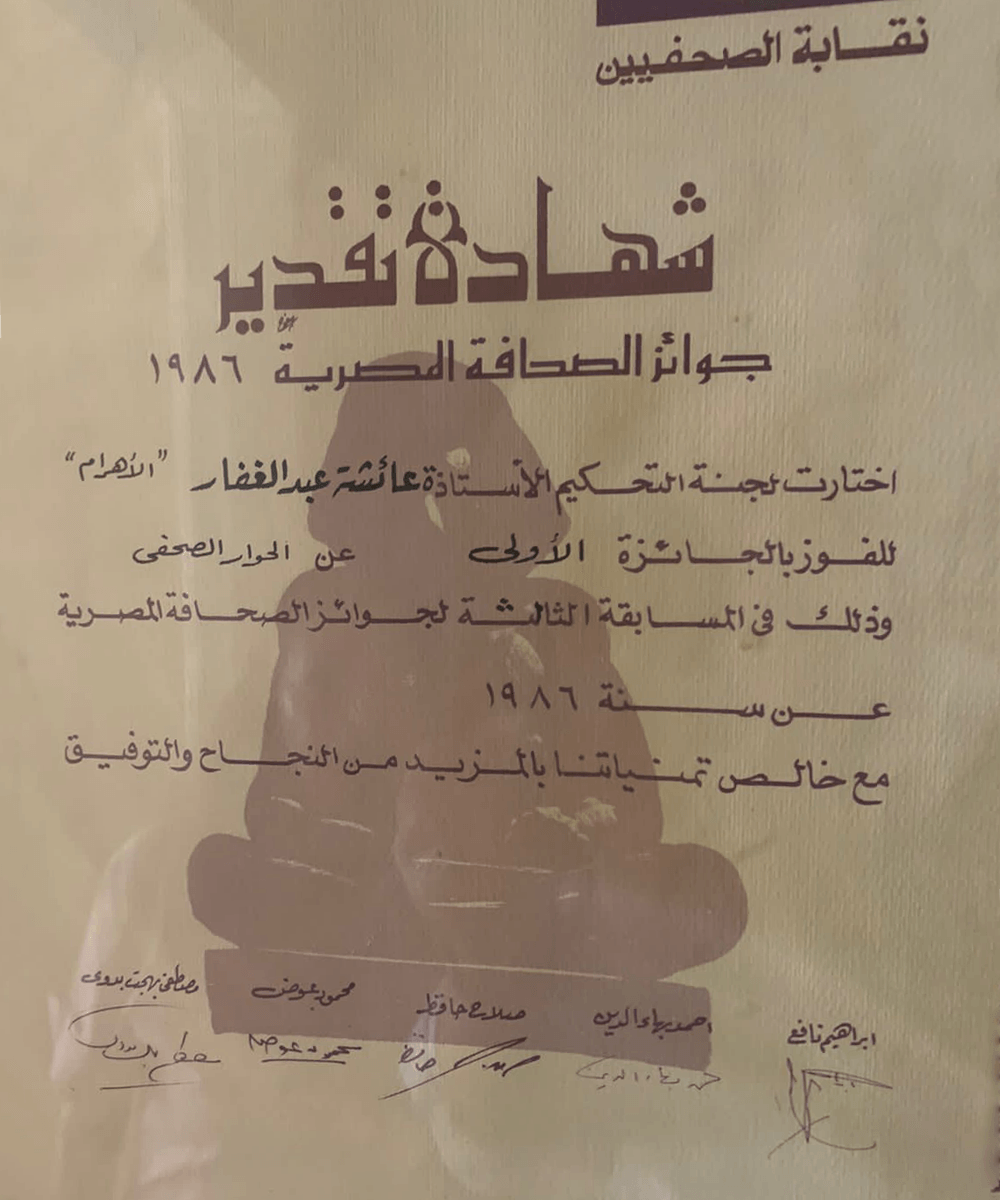 نقابة الصحفيين
شهادة تقدير
جوائز الصحافة المصرية ١٩٨٦
اختارت لجنة التحكيم الأستاذة عائشة عبد الغفار "الأهرام"
للفوز بالجائزة الأولى عن الحوار الصحفى
وذلك فى المسابقة الثالثة لجوائز الصحافة المصرية
عن سنة ١٩٨٦
مع خالص تمنياتنا بالمزيد من النجاح والتوفيق
ابراهيم نافع احمد بهاء الدين صلاح حافظ محمود عوض مصطفى بهجت بدوى
احمد بهاء الدين صلاح حافظ محمود عوض